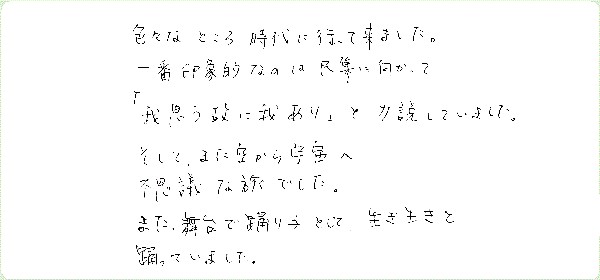 色々なところ時代に行って来ました。
一番印象的なのは民集に向かって
「我思う故に我あり」と力説していました。
そして、また空から宇宙へ
不思議な旅でした。
また、舞台で踊り子として、生き生きと
踊っていました。